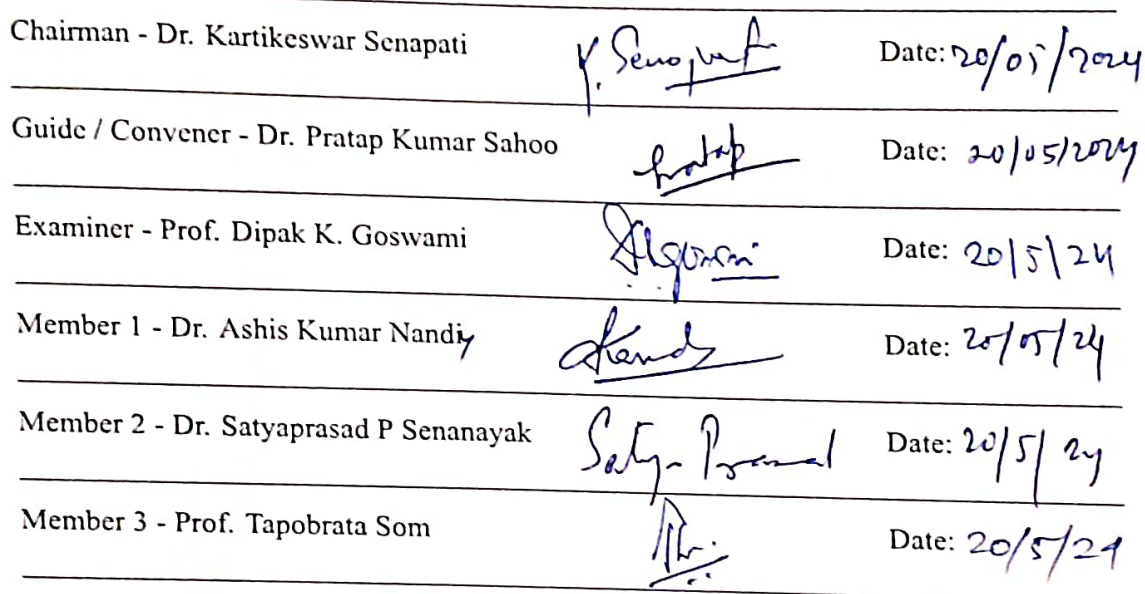 Chairman - Dr. Kartikeswar Senapati K. Senapati Date: 20/05/2024
Guide / Convener - Dr. Pratap Kumar Sahoo Pratap Date: 20/05/2024
Examiner - Prof. Dipak K. Goswami Date: 20/5/24
Member 1 - Dr. Ashis Kumar Nandy Date: 20/05/24
Member 2 - Dr. Satyaprasad P Senanayak Satya Prasad Date: 20/5/24
Member 3 - Prof. Tapobrata Som Date: 20/5/24